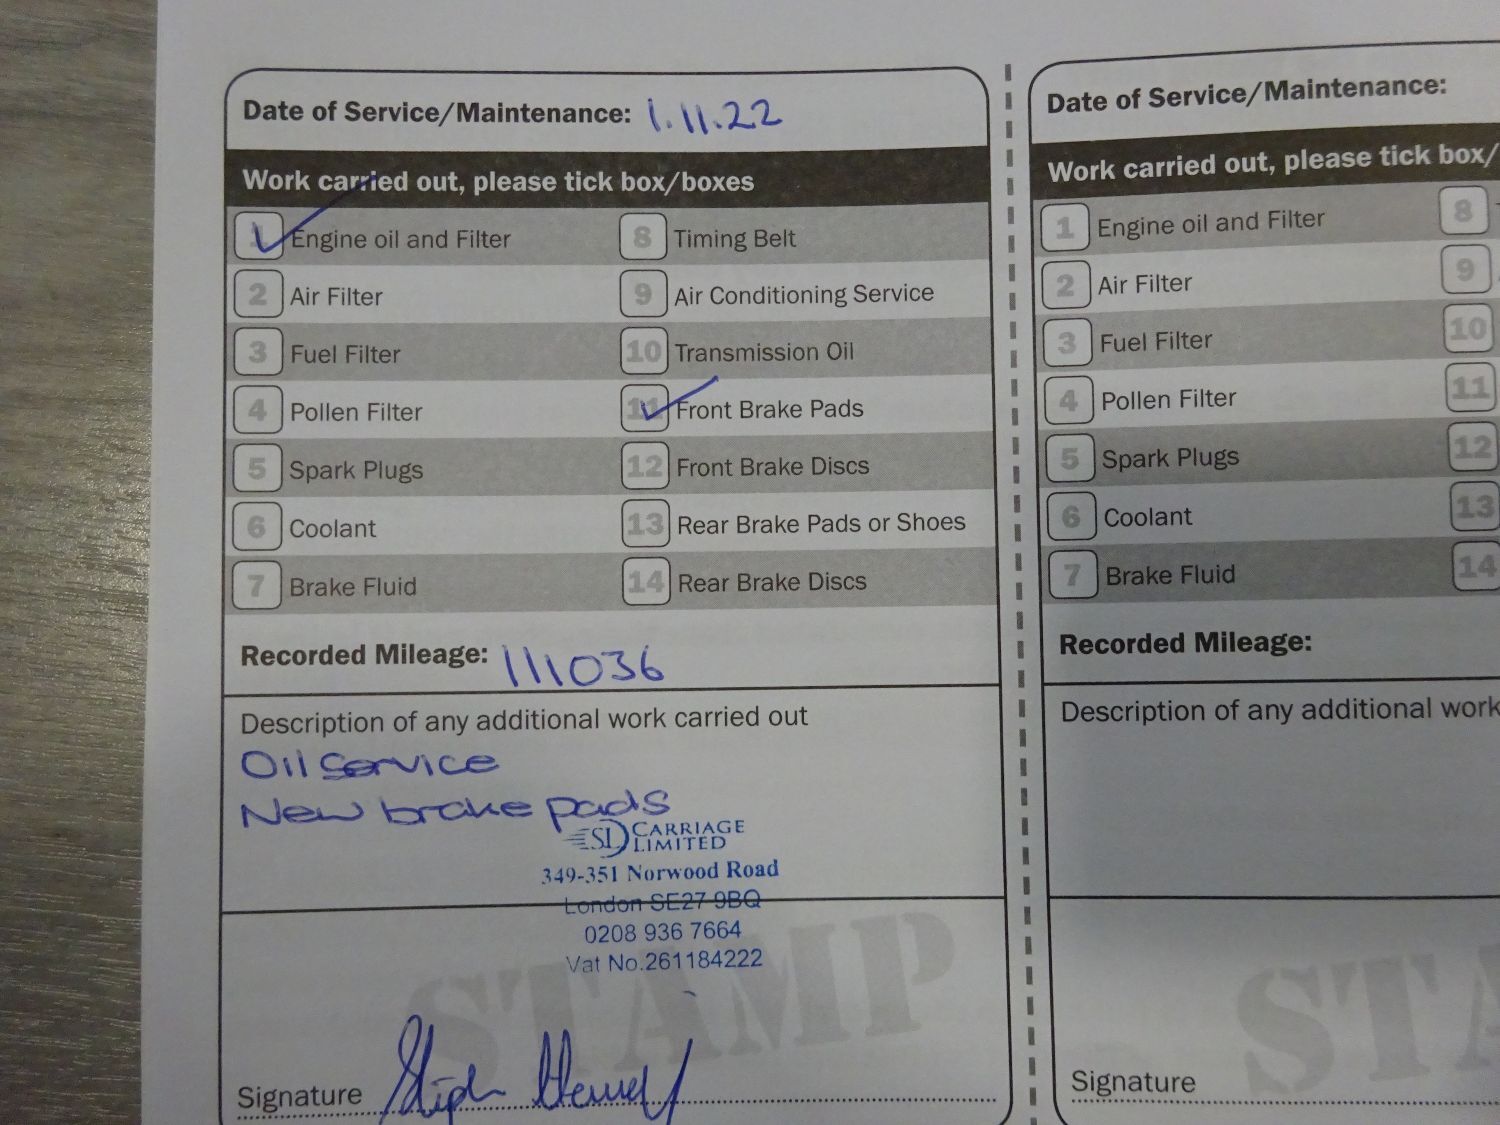 Date of Service/Maintenance: 1.11.22
Work carried out, please tick box/boxes
1 Engine oil and Filter
8 Timing Belt
2 Air Filter
9 Air Conditioning Service
3 Fuel Filter
10 Transmission Oil
4 Pollen Filter
11 Front Brake Pads
5 Spark Plugs
12 Front Brake Discs
6 Coolant
13 Rear Brake Pads or Shoes
7 Brake Fluid
14 Rear Brake Discs
Recorded Mileage: 111036
Description of any additional work carried out
Oil service
New brake pads
SL CARRIAGE
LIMITED
349-351 Norwood Road
London SE27 9BQ
0208 936 7664
Vat No.261184222
STAMP
Signature
Date of Service/Maintenance:
Work carried out, please tick box/
1 Engine oil and Filter
8
2 Air Filter
9
3 Fuel Filter
10
4 Pollen Filter
11
5 Spark Plugs
12
6 Coolant
13
7 Brake Fluid
14
Recorded Mileage:
Description of any additional work
STA
Signature